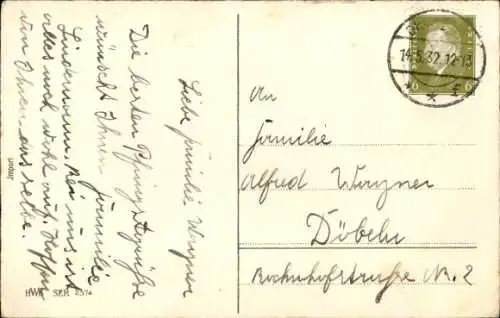 Liebe Familie Wagner
Die besten Pfingstgrüße
wünscht Ihnen Familie
Lindemann. Bei uns ist
alles noch wohl auf. Hoffen
von Ihnen das selbe.
An
Familie
Alfred Wagner
Döbeln
Bahnhofstraße Nr. 2
14.5.32.12-13
6
6
HWB SER 2374